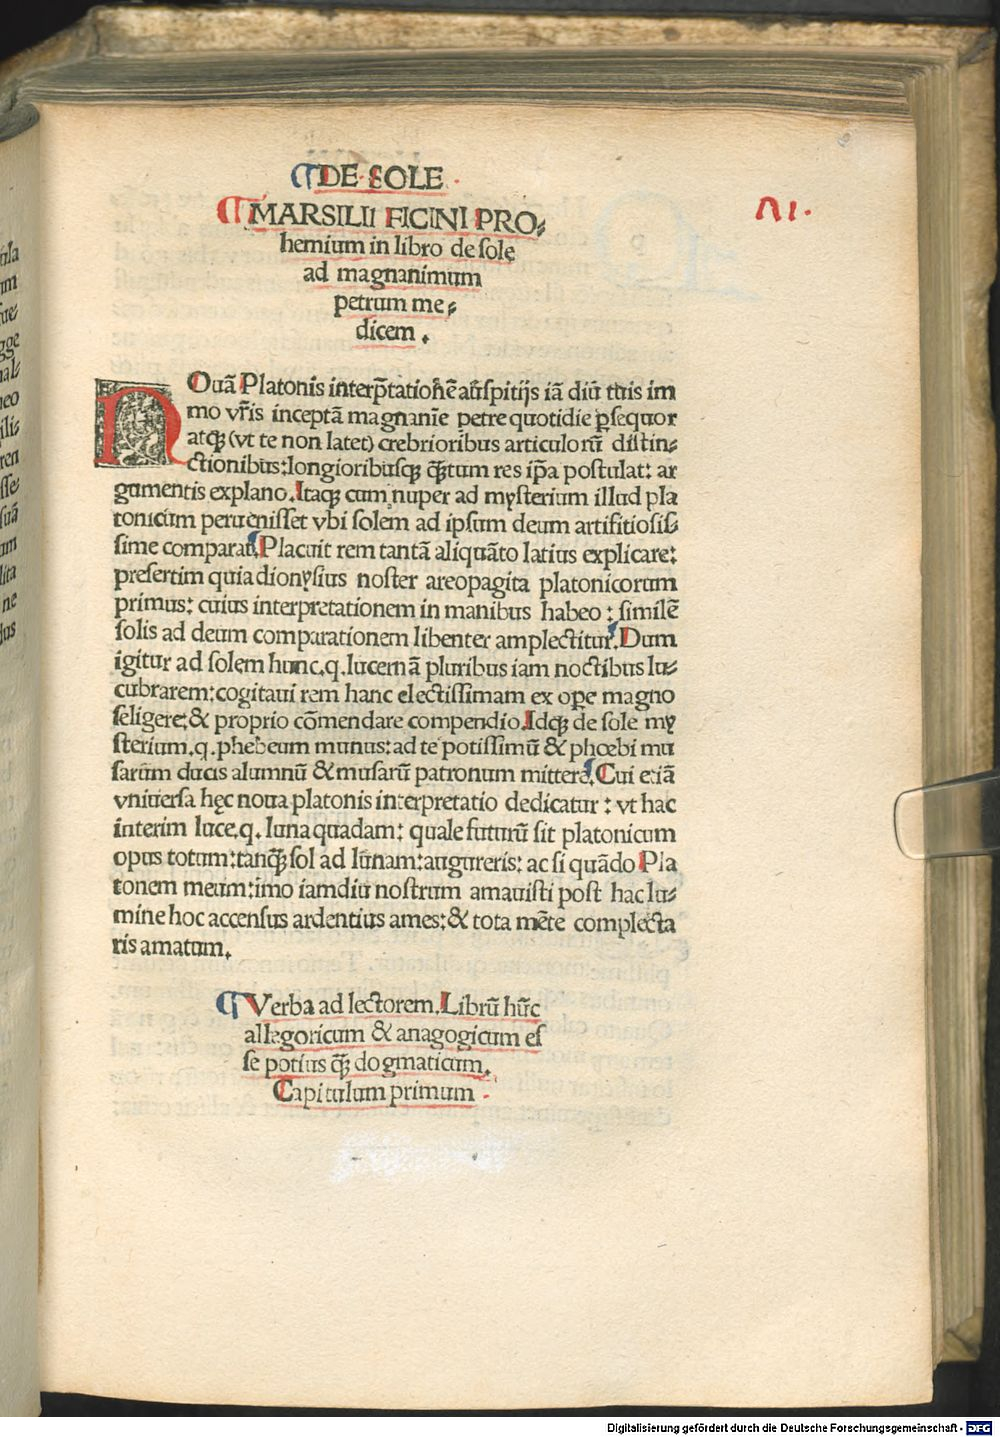 ¶DE SOLE
¶MARSILII FICINI PRO⸗
hemium in libro de sole
ad magnanimum
petrum me⸗
dicem.
VI.
NOuā Platonis interp̄tationē auspitijs iā diu tuis im
mo vr̄is inceptā magnanīe petre quotidie ꝑsequor
atqꝫ (vt te non latet) crebrioribus articulorū distin⸗
ctionibus: longioribusqꝫ qꝫ̄tum res ip̄a postulat: ar
gumentis explano. Itaqꝫ cum nuper ad mysterium illud pla
tonicum peruenisset vbi solem ad ipsum deum artifitiosis⸗
sime comparat. Placuit rem tantā aliquāto latius explicare:
presertim quia dionysius noster areopagita platonicorum
primus: cuius interpretationem in manibus habeo: similē
solis ad deum comparationem libenter amplectitur. Dum
igitur ad solem hunc .q. lucernā pluribus iam noctibus lu⸗
cubrarem: cogitaui rem hanc electissimam ex ope magno
seligere: & proprio cōmendare compendio. Idqꝫ de sole my
sterium .q. phebeum munus: ad te potissimū & phœbi mu
sarum ducis alumnū & musarū patronum mittere. Cui etiā
vniuersa hęc noua platonis interpretatio dedicatur: vt hac
interim luce .q. luna quadam: quale futurū sit platonicum
opus totum: tanqꝫ̄ sol ad lunam: augureris: ac si quādo Pla
tonem meum: imo iamdiu nostrum amauisti post hac lu⸗
mine hoc accensus ardentius ames: & tota mēte complecta
ris amatum.
¶Verba ad lectorem. Librū hūc
allegoricum & anagogicum es
se potius qꝫ̄ dogmaticum.
Capitulum primum
Digitalisierung gefördert durch die Deutsche Forschungsgemeinschaft - DFG